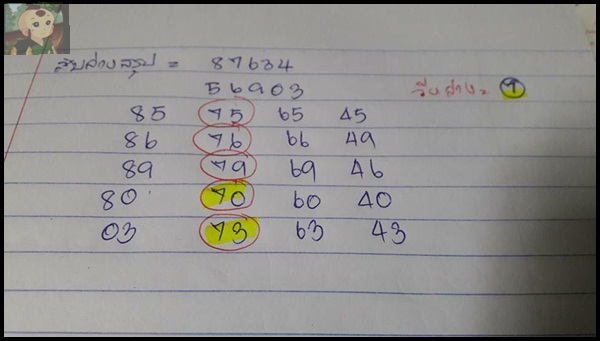 สิบล่างสรุป = 87634
56903
วิ่งล่าง = 7
85 75 65 45
86 76 66 49
89 79 69 46
80 70 60 40
03 73 63 43